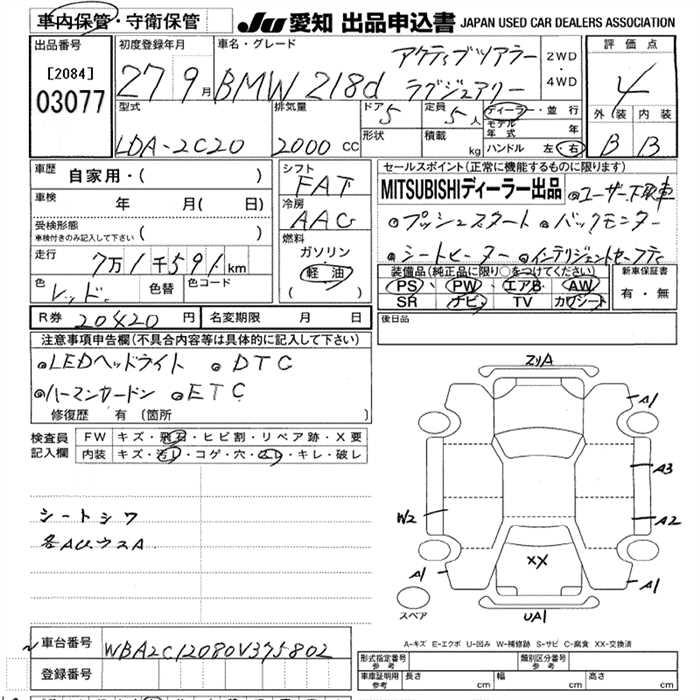 車内保管・守衛保管 JU 愛知 出品申込書 JAPAN USED CAR DEALERS ASSOCIATION
出品番号 [2084] 03077
初度登録年月 27 9月
車名・グレード BMW 218d アクティブツアラー ラグジュアリー
2WD・4WD
評価点 4
型式 LDA-2C20
排気量 2000 CC
ドア 5 形状
定員 5人 積載 kg
ディーラー・並行
モデル年式 年
ハンドル 左 右
外装 内装
B B
車歴 自家用・( )
車検 年 月( 日)
受検形態 車検付きのみ記入して下さい ( )
走行 7万1千591km
色 レッド 色替 色コード
シフト FAT
冷房 AAC
燃料 ガソリン 軽油 ( )
セールスポイント(正常に機能するものに限ります)
MITSUBISHIディーラー出品 ユーザー下取車
プッシュスタート バックモニター
シートヒーター インテリジェントセーフティ
装備品(純正品に限り○をつけてください)
PS PW エアB AW
SR ナビ TV カワシート
新車保証書 有・無
後日品
R券 20420円 名変期限 月 日
注意事項申告欄(不具合内容等は具体的に記入して下さい)
LEDヘッドライト DTC
ハーマンカードン ETC
修復歴 有(箇所 )
検査員記入欄
FW キズ・飛石・ヒビ割・リペア跡・X要
内装 キズ・汚レ・コゲ・穴・スレ・キレ・破レ
シートシワ
各AUウスA
A1
A3
A2
W2
XX
A1
A1
UA1
スペア
A-キズ E-エクボ U-凹み W-補修跡 S-サビ C-腐食 XX-交換済
車台番号 WBA2C12080V395802
登録番号
形式指定番号 参考 類別区分番号 参考
車庫証明用 参考 長さ cm 幅 cm 高さ cm